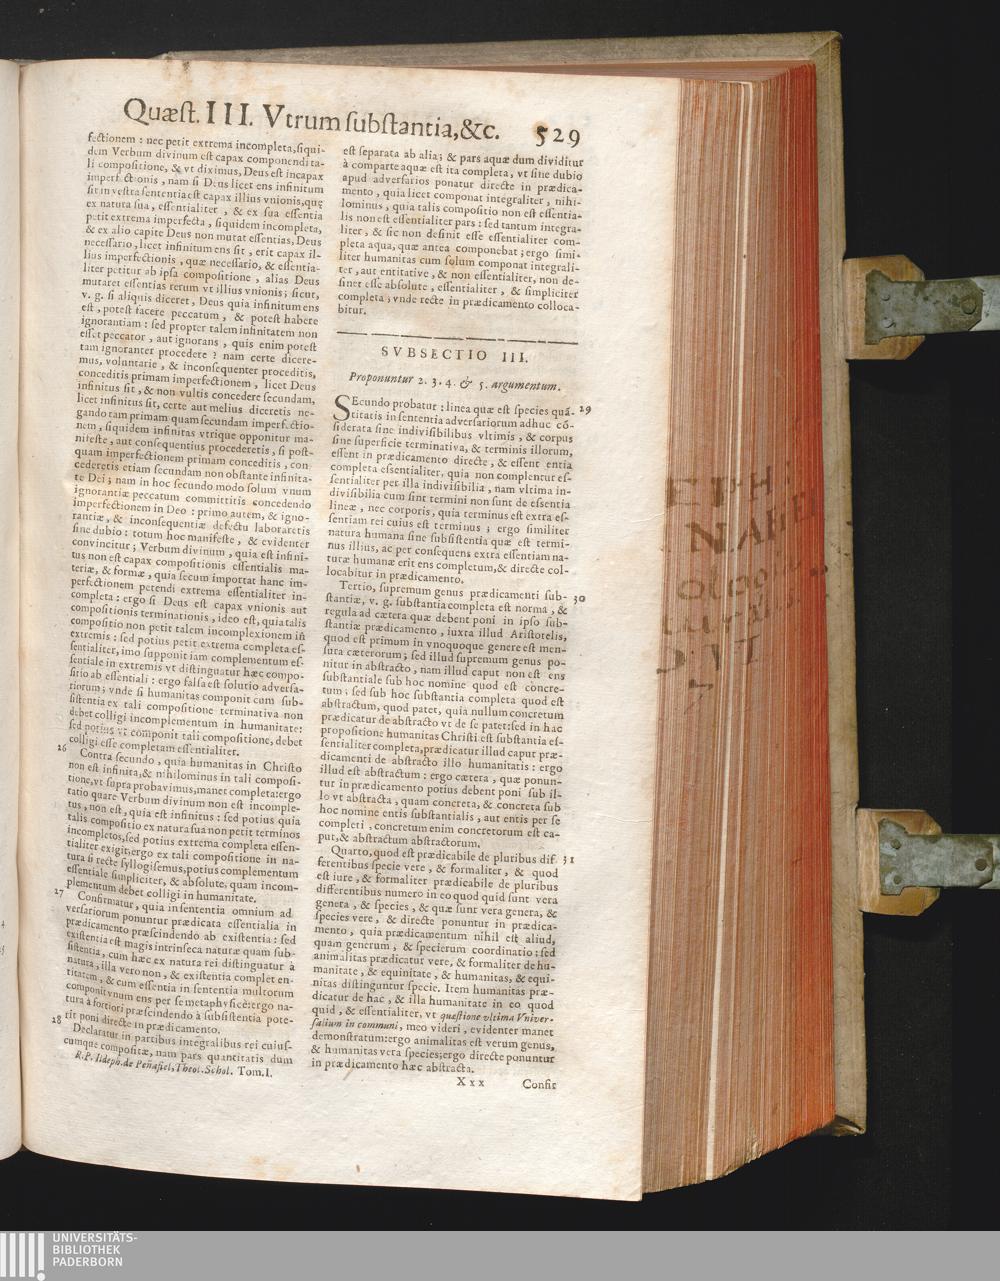 Quæst. III. Vtrum substantia, &c. 529
fectionem : nec petit extrema incompleta, siqui-
dem Verbum divinum est capax componendi ta-
li compositione, & vt diximus, Deus est incapax
imperfectionis, nam si Deus licet ens infinitum
sit in vestra sententia est capax illius vnionis, quę
ex natura sua, essentialiter, & ex sua essentia
petit extrema imperfecta, siquidem incompleta,
& ex alio capite Deus non mutat essentias, Deus
necessario, licet infinitum ens sit, erit capax il-
lius imperfectionis, quæ necessario, & essentia-
liter petitur ab ipsa compositione, alias Deus
mutaret essentias rerum vt illius vnionis; sicut,
v. g. si aliquis diceret, Deus quia infinitum ens
est, potest facere peccatum, & potest habere
ignorantiam : sed propter talem infinitatem non
esset peccator, aut ignorans, quis enim potest
tam ignoranter procedere ? nam certe dicere-
mus, voluntarie, & inconsequenter proceditis,
conceditis primam imperfectionem, licet Deus
infinitus sit, & non vultis concedere secundam,
licet infinitus sit, certe aut melius diceretis ne-
gando tam primam quam secundam imperfectio-
nem, siquidem infinitas vtrique opponitur ma-
nifeste, aut consequentius procederetis, si post-
quam imperfectionem primam conceditis, con-
cederetis etiam secundam non obstante infinita-
te Dei; nam in hoc secundo modo solum vnum
ignorantiæ peccatum committitis concedendo
imperfectionem in Deo : primo autem, & igno-
rantiæ, & inconsequentiæ defectu laboraretis
sine dubio : totum hoc manifeste, & evidenter
convincitur; Verbum divinum, quia est infini-
tus non est capax compositionis essentialis ma-
teriæ, & formæ, quia secum importat hanc im-
perfectionem petendi extrema essentialiter in-
completa : ergo si Deus est capax vnionis aut
compositionis terminationis, ideo est, quia talis
compositio non petit talem incomplexionem in
extremis : sed potius petit extrema completa es-
sentialiter, imo supponit iam complementum es-
sentiale in extremis vt distinguatur hæc compo-
sitio ab essentiali : ergo falsa est solutio adversa-
riorum; vnde si humanitas componit cum sub-
sistentia ex tali compositione terminativa non
debet colligi incomplementum in humanitate:
sed potius vt componit tali compositione, debet
colligi esse completam essentialiter.
26 Contra secundo, quia humanitas in Christo
non est infinita, & nihilominus in tali composi-
tione, vt supra probavimus, manet completa: ergo
ratio quare Verbum divinum non est incomple-
tus, non est, quia est infinitus : sed potius quia
talis compositio ex natura sua non petit terminos
incompletos, sed potius extrema completa essen-
tialiter exigit; ergo ex tali compositione in na-
tura si recte syllogisemus, potius complementum
essentiale simpliciter, & absolute, quam incom-
plementum debet colligi in humanitate.
27 Confirmatur, quia in sententia omnium ad
versariorum ponuntur prædicata essentialia in
prædicamento præscindendo ab existentia : sed
existentia est magis intrinseca naturæ quam sub-
sistentia, cum hæc ex natura rei distinguatur à
natura, illa vero non, & existentia complet en-
titatem, & cum essentia in sententia multorum
componit vnum ens per se metaphysicè: ergo na-
tura à fortiori præscindendo à subsistentia pote-
rit poni directe in prædicamento.
28 Declaratur in partibus integralibus rei cuius-
cumque compositæ, nam pars quantitatis dum
R.P. Ildeph. de Peñafiel, Theol. Schol. Tom. I.
est separata ab alia; & pars aquæ dum dividitur
à comparte aquæ est ita completa, vt sine dubio
apud adversarios ponatur directe in prædica-
mento, quia licet componat integraliter, nihi-
lominus, quia talis compositio non est essentia-
lis non est essentialiter pars : sed tantum integra-
liter, & sic non desinit esse essentialiter com-
pleta aqua, quæ antea componebat; ergo simi-
liter humanitas cum solum componat integrali-
ter, aut entitative, & non essentialiter, non de-
sinet esse absolute, essentialiter, & simpliciter
completa; vnde recte in prædicamento colloca-
bitur.
SVBSECTIO III.
Proponuntur 2. 3. 4. & 5. argumentum.
SEcundo probatur : linea quæ est species quā- 29
titatis in sententia adversariorum adhuc cō-
siderata sine indivisibilibus vltimis, & corpus
sine superficie terminativa, & terminis illorum,
essent in prædicamento directe, & essent entia
completa essentialiter, quia non complentur es-
sentialiter per illa indivisibilia, nam vltima in-
divisibilia cum sint termini non sunt de essentia
lineæ, nec corporis, quia terminus est extra es-
sentiam rei cuius est terminus; ergo similiter
natura humana sine subsistentia quæ est termi-
nus illius, ac per consequens extra essentiam na-
turæ humanæ erit ens completum, & directe col-
locabitur in prædicamento.
Tertio, supremum genus prædicamenti sub- 30
stantiæ, v. g. substantia completa est norma, &
regula ad cætera quæ debent poni in ipso sub-
stantiæ prædicamento, iuxta illud Aristotelis,
quod est primum in vnoquoque genere est men-
sura cæterorum; sed illud supremum genus po-
nitur in abstracto, nam illud caput non est ens
substantiale sub hoc nomine quod est concre-
tum; sed sub hoc substantia completa quod est
abstractum, quod patet, quia nullum concretum
prædicatur de abstracto vt de se patet: sed in hac
propositione humanitas Christi est substantia es-
sentialiter completa, prædicatur illud caput præ-
dicamenti de abstracto illo humanitatis : ergo
illud est abstractum : ergo cætera, quæ ponun-
tur in prædicamento potius debent poni sub il-
lo vt abstracta, quam concreta, & concreta sub
hoc nomine entis substantialis, aut entis per se
completi, concretum enim concretorum est ca-
put, & abstractum abstractorum.
Quarto, quod est prædicabile de pluribus dif. 31
ferentibus specie vere, & formaliter, & quod
est iure, & formaliter prædicabile de pluribus
differentibus numero in eo quod quid sunt vera
genera, & species, & quæ sunt vera genera, &
species vere, & directe ponuntur in prædica-
mento, quia prædicamentum nihil est aliud,
quam generum, & specierum coordinatio : sed
animalitas prædicatur vere, & formaliter de hu-
manitate, & equinitate, & humanitas, & equi-
nitas distinguntur specie. Item humanitas præ-
dicatur de hac, & illa humanitate in eo quod
quid, & essentialiter, vt quæstione vltima Vniver-
salium in communi, meo videri, evidenter manet
demonstratum: ergo animalitas est verum genus,
& humanitas vera species; ergo directe ponuntur
in prædicamento hæc abstracta.
Xxx Confir
UNIVERSITÄTS-
BIBLIOTHEK
PADERBORN